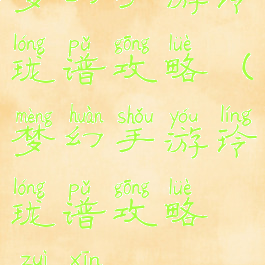 梦幻手游玲
lóng pǔ gōng luè
珑谱攻略（
mèng huàn shǒu yóu líng
梦幻手游玲
lóng pǔ gōng luè
珑谱攻略
zuì xīn